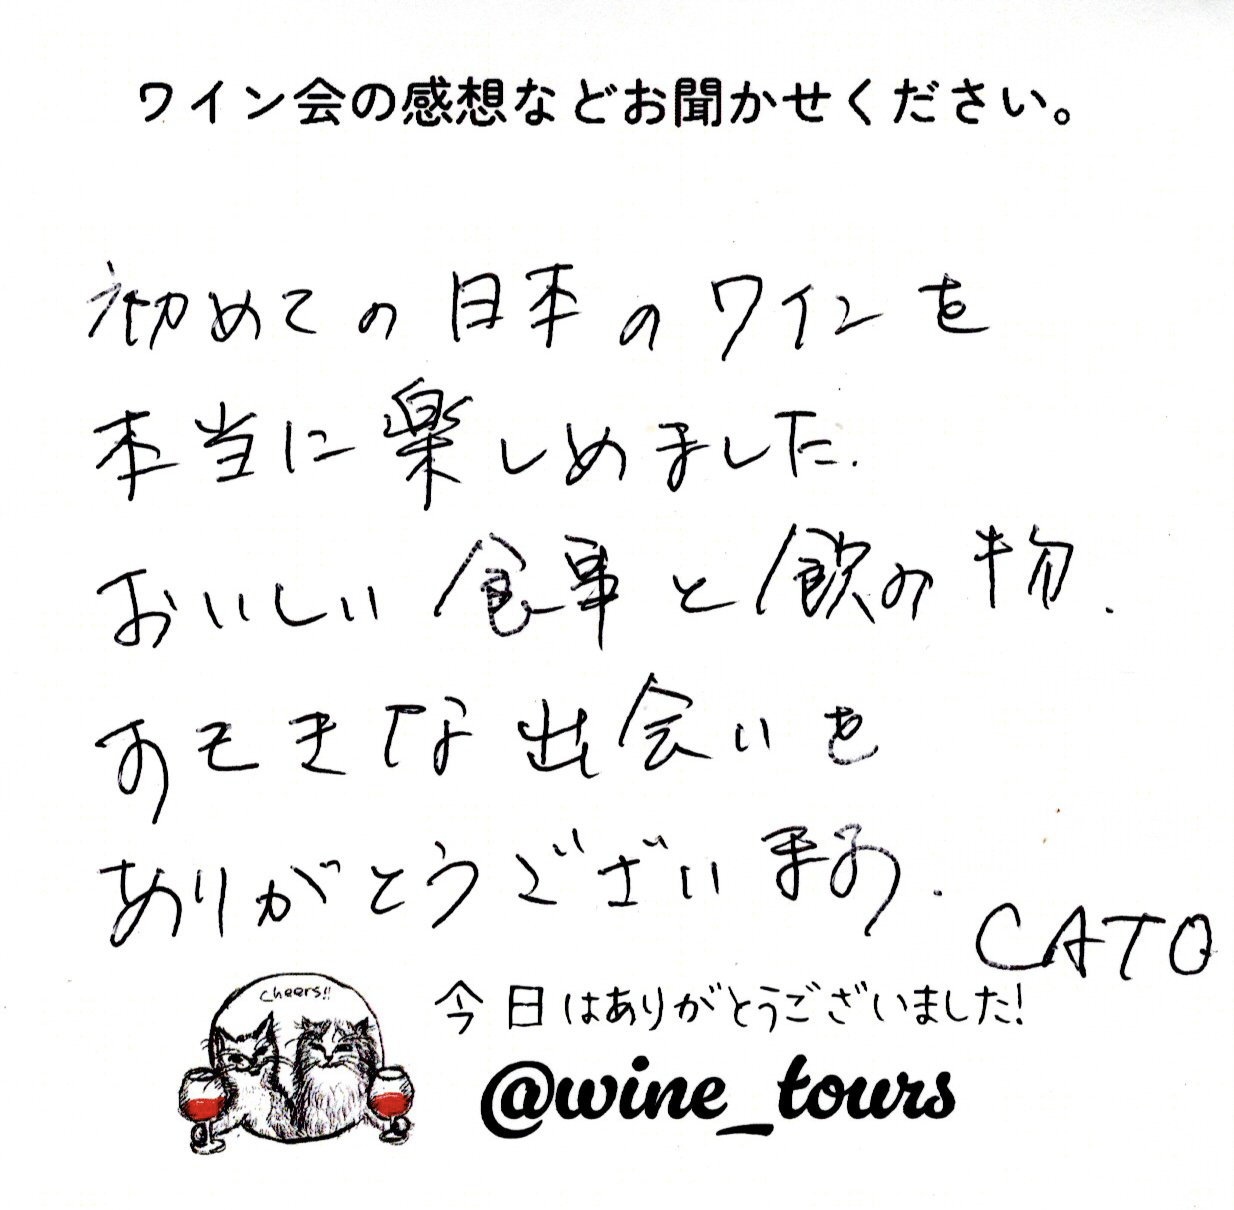 ワイン会の感想などお聞かせください。
初めての日本のワインを
本当に楽しめました.
おいしい食事と飲み物.
すてきな出会いを
ありがとうございます.
CATO
cheers!!
今日はありがとうございました!
@wine_tours